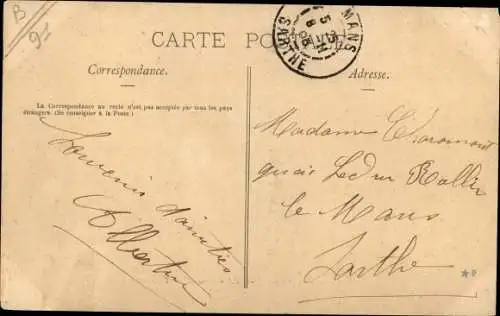 B
9=
CARTE PO
MANS
SARTHE
Correspondance.
Adresse.
La Correspondance au recto n'est pas acceptée par tous les pays
étrangers. (Se renseigner à la Poste.)
Souvenir d'amitiés
Albertine
Madame
quai Ledru Rollin
le Mans
Sarthe